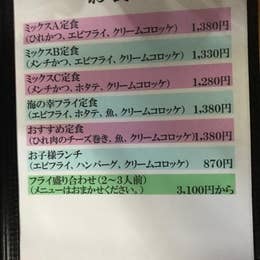 ミックスA定食
(ひれかつ、エビフライ、クリームコロッケ) 1,380円
ミックスB定食
(メンチかつ、エビフライ、クリームコロッケ) 1,330円
ミックスC定食
(メンチかつ、ホタテ、クリームコロッケ) 1,280円
海の幸フライ定食
(エビフライ、ホタテ、魚、クリームコロッケ) 1,380円
おすすめ定食
(ひれ肉のチーズ巻き、魚、クリームコロッケ) 1,380円
お子様ランチ
(エビフライ、ハンバーグ、クリームコロッケ) 870円
フライ盛り合わせ(2~3人前)
(メニューはおまかせください。) 3,100円から